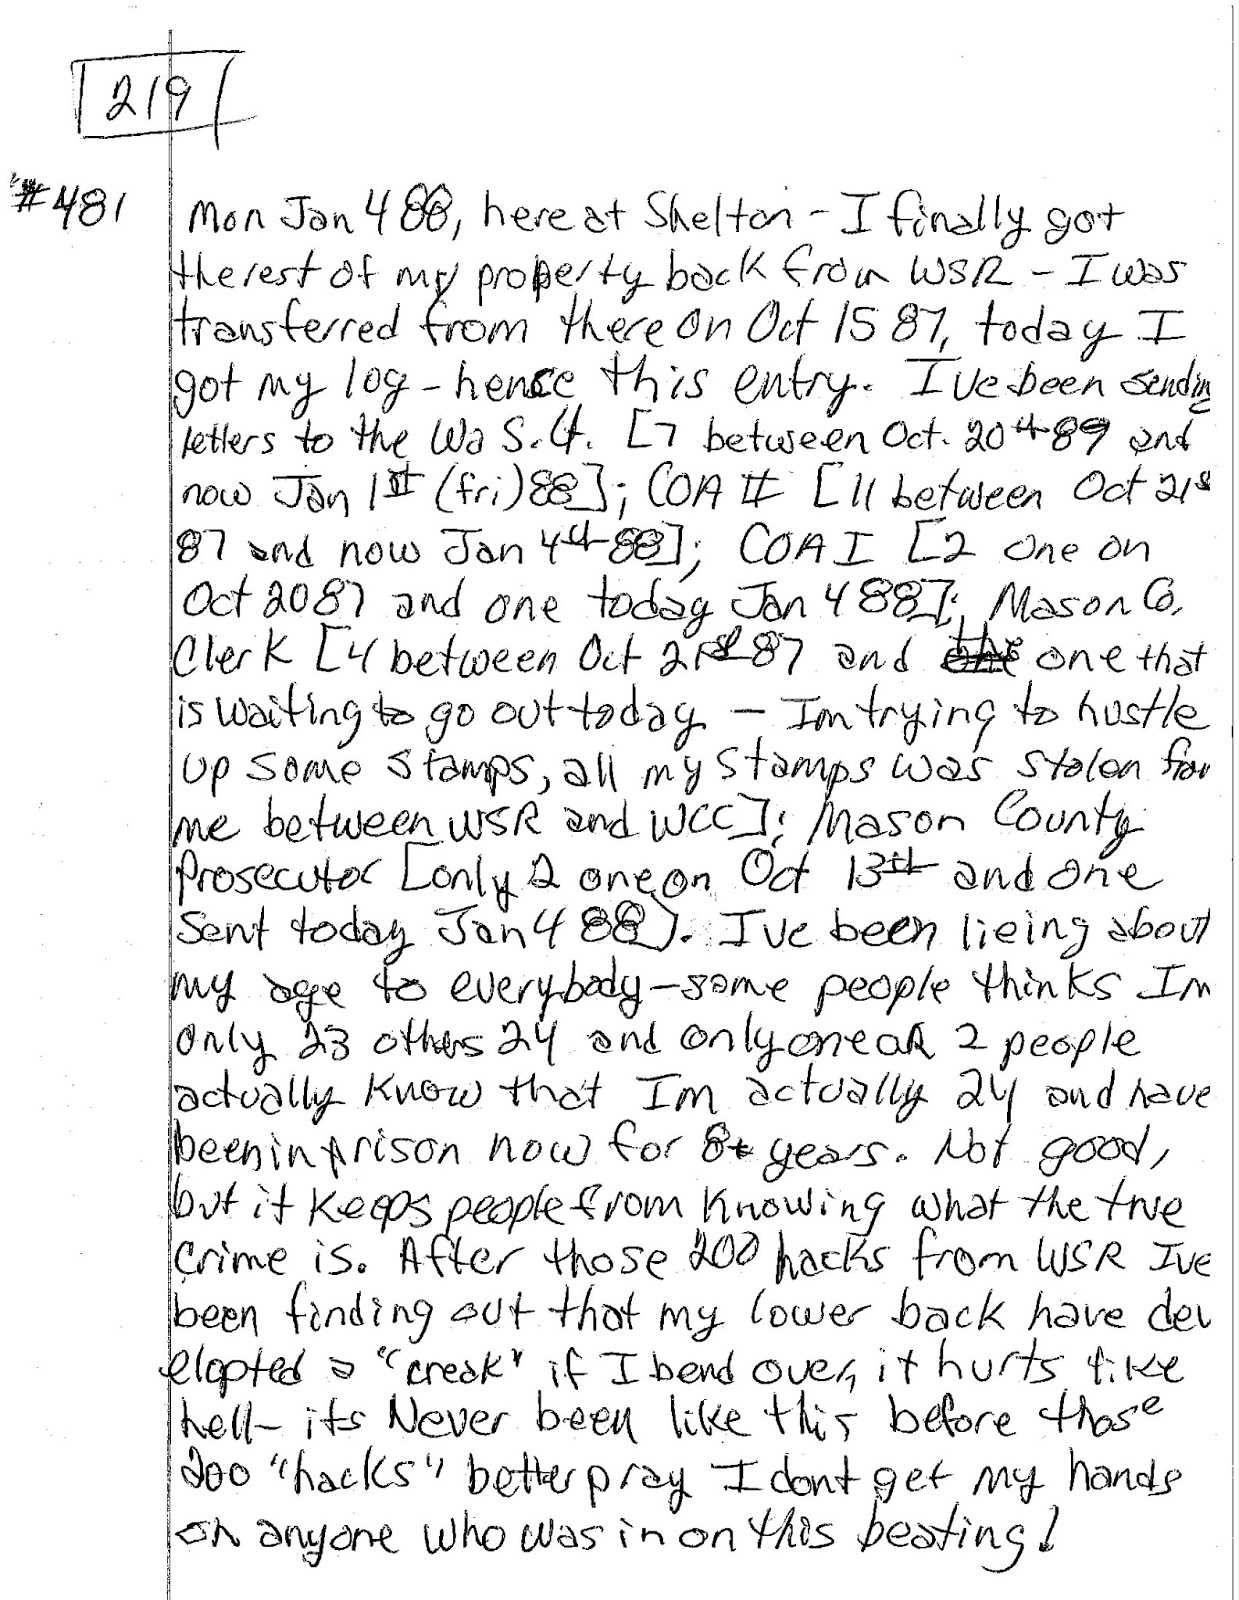 219
#481 Mon Jan 4 88, here at Shelton - I finally got
the rest of my property back from WSR - I was
transferred from there on Oct 15 87, today I
got my log - hence this entry. Ive been sendin
letters to the Wa S.Ct. [7 between Oct. 20th 89 and
now Jan 1st (fri) 88]; COA II [11 between Oct 21st
87 and now Jan 4th 88]; COA I [2 one on
Oct 20 87 and one today Jan 4 88]; Mason Co.
Clerk [4 between Oct 21st 87 and one that
is waiting to go out today - Im trying to hustle
up some stamps, all my stamps was stolen from
me between WSR and WCC]; Mason County
Prosecutor [only 2 one on Oct 13th and one
sent today Jan 4 88]. Ive been lieing about
my age to everybody - some people thinks Im
only 23 others 24 and only one or 2 people
actually know that Im actually 24 and have
been in prison now for 8+ years. Not good,
but it keeps people from knowing what the true
crime is. After those 200 hacks from WSR Ive
been finding out that my lower back have dev
elopted a "creak" if I bend over, it hurts like
hell - its Never been like this before those
200 "hacks" better pray I dont get my hands
on anyone who was in on this beating!